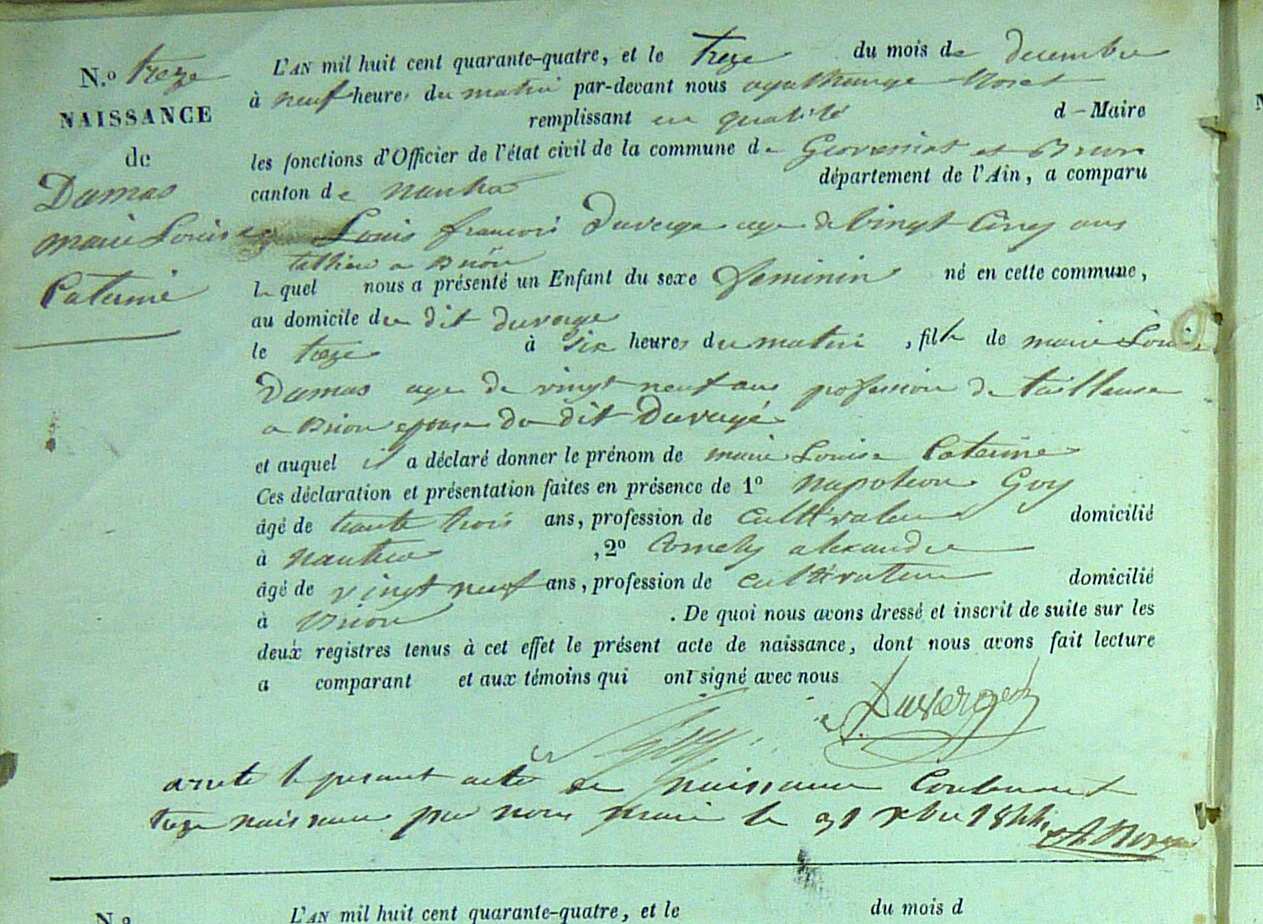 N.o treze
NAISSANCE
de
Dumas
marie Louise
Caterine
L'AN mil huit cent quarante-quatre, et le treze du mois de decembre
à neuf heures du matin par-devant nous Moret
remplissant en qualité d - Maire
les fonctions d'Officier de l'état civil de la commune de Geovreissiat et Brion
canton de nantua département de l'Ain, a comparu
Louis francois Duverge age de vingt Cinq ans
a Brion
le quel nous a présenté un Enfant du sexe feminin né en cette commune,
au domicile du dit duverge
le treze à six heures du matin, fille de marie Louise
Dumas age de vingt neuf ans profession de tailleuse
a Brion epouse du dit Duvergé
et auquel il a déclaré donner le prénom de marie Louise Caterine
Ces déclaration et présentation faites en présence de 1o Napoleon Goy
âgé de trante trois ans, profession de cultivateur domicilié
à nantua, 2o alexandre
âgé de vingt neuf ans, profession de cultivateur domicilié
à Brion. De quoi nous avons dressé et inscrit de suite sur les
deux registres tenus à cet effet le présent acte de naissance, dont nous avons fait lecture
a comparant et aux témoins qui ont signé avec nous
Goy Duverger
arrete le present acte de naissance Contenant
treze naissance par nous maire le 31 xbre 1844
Moret
N.o L'AN mil huit cent quarante-quatre, et le du mois d